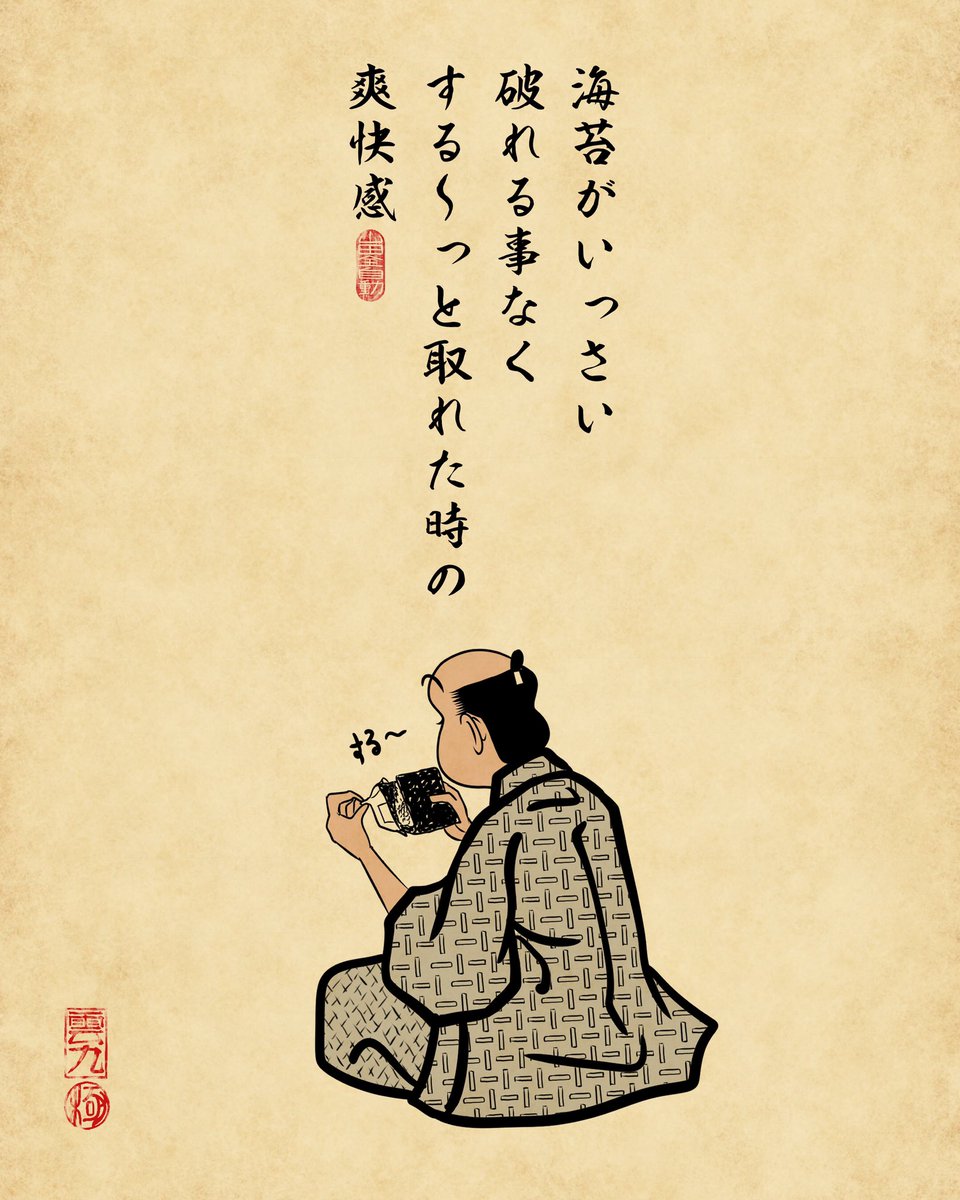 海苔がいっさい
破れる事なく
する〜っと取れた時の
爽快感
する〜